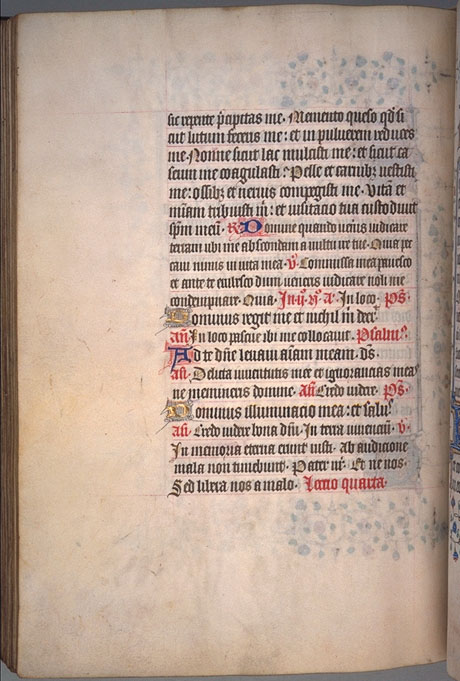 sic repente p̄cipitas me. Memento queso qd̄ si
cut lutum feceris me: et in puluerem reduces
me. Nonne sicut lac mulcisti me: et sicut ca
seum me coagulasti: Pelle et carnibꝫ uestisti
me: ossibꝫ et neruis compegisti me. Vitā et
mīam tribuisti m̄: et uisitacio tua custodiuit
sp̄m meū. R Domine quando ueneris iudicare
terram ubi me abscondam a uultu ire tue. Quia pec
caui nimis in uita mea. v̄ Commissa mea pauesco
et ante te erubesco dum ueneris iudicare noli me
condempnare. Quia. In loco. ps̄.
Dominus regit me et nichil m̄ deer̄
añ In loco pascue ibi me collocauit. Psalm⁹.
Ad te dn̄e leuaui aīam meam. ds̄.
añ. Delicta iuuentutis mee et ignorancias meas
ne memineris domine. Añ Credo uidere. ps̄.
Dominus illuminacio mea: et salu⁹
añ. Credo uidere bona dn̄i. In terra uiuenciū. v̄.
In memoria eterna erunt iusti. Ab audicione
mala non timebunt. Pater nr̄. Et ne nos.
Sed libera nos a malo. Lectio quarta.